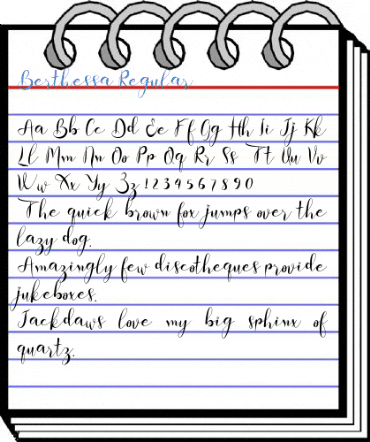 Berthessa Regular
Aa Bb Cc Dd Ee Ff Gg Hh Ii Jj Kk
Ll Mm Nn Oo Pp Qq Rr Ss Tt Uu Vv
Ww Xx Yy Zz 1 2 3 4 5 6 7 8 9 0
The quick brown fox jumps over the
lazy dog.
Amazingly few discotheques provide
jukeboxes.
Jackdaws love my big sphinx of
quartz.